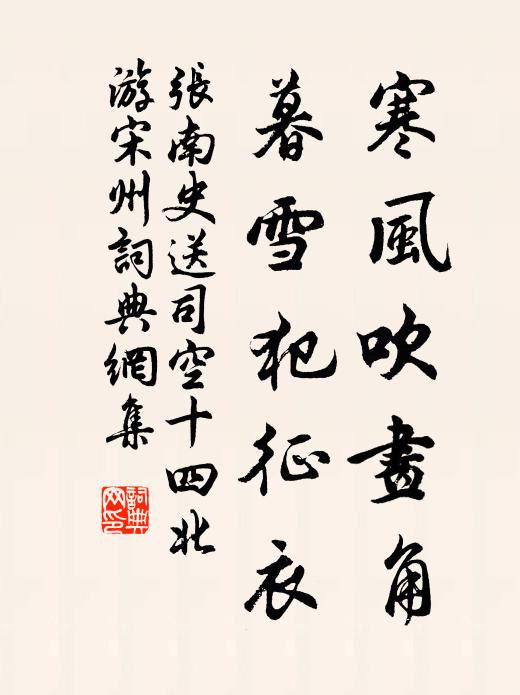 寒風吹畫角
暮雪犯征衣
張南史送司空十四北
游宋州詞典網集
詞典
网印